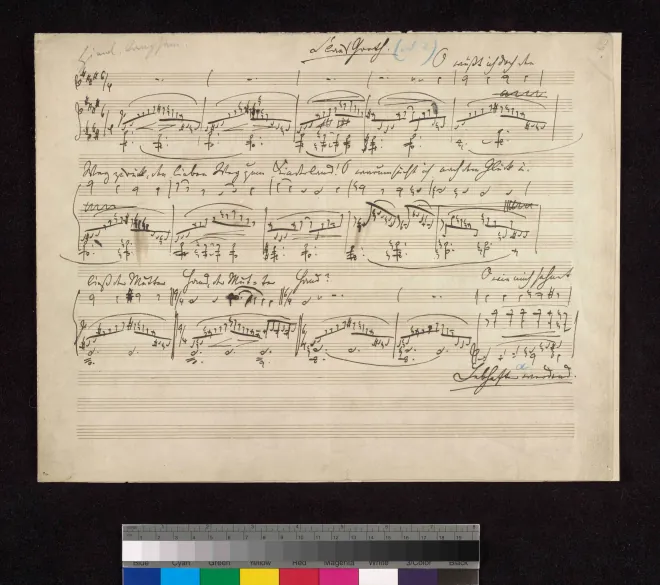 Ziemlich langsam.
Klaus Groth.
O wüßt ich doch den
Weg zurück, den lieben Weg zum Kinderland! O warum sucht ich nach dem Glück u.
ließ der Mutter Hand, der Mut-ter Hand?
O wie mich sehnet
Lebhafter werdend.
Blue Cyan Green Yellow Red Magenta White 3/Color Black